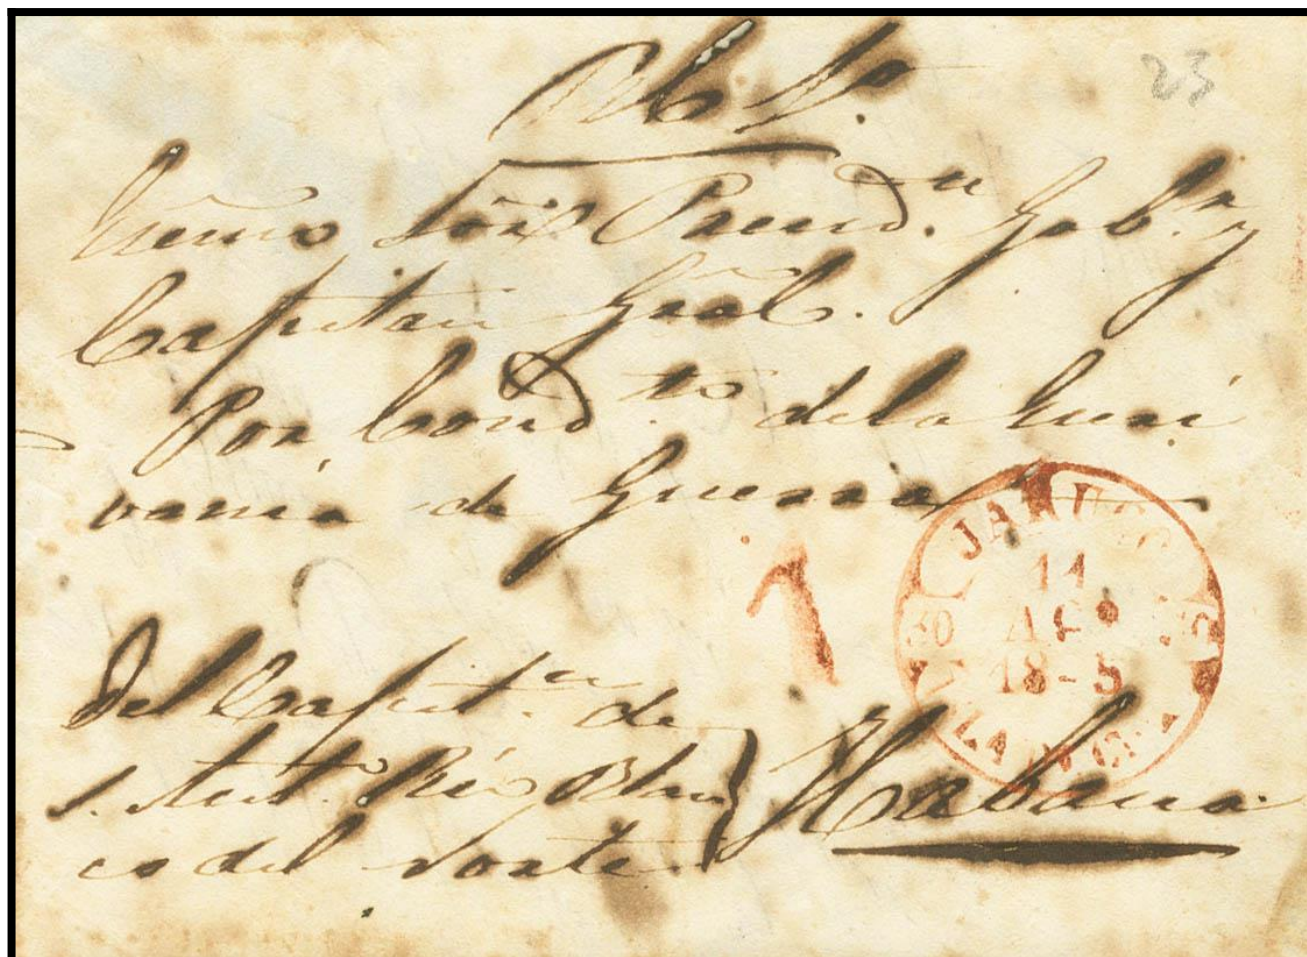 23
Exmo Sõr Presid.te Gob.or y
Capitan Gral.
Por Cond.to de la Escri
vania de Guerra
JARUCO
11
AGº
18-5
1
Del Capit.n de
Rio Blan
co del Norte.
Habana.